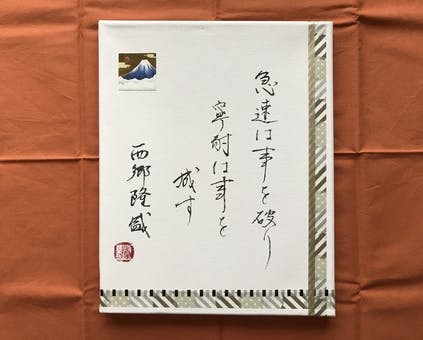 急速は事を破り
寧耐は事を
成す
西郷隆盛